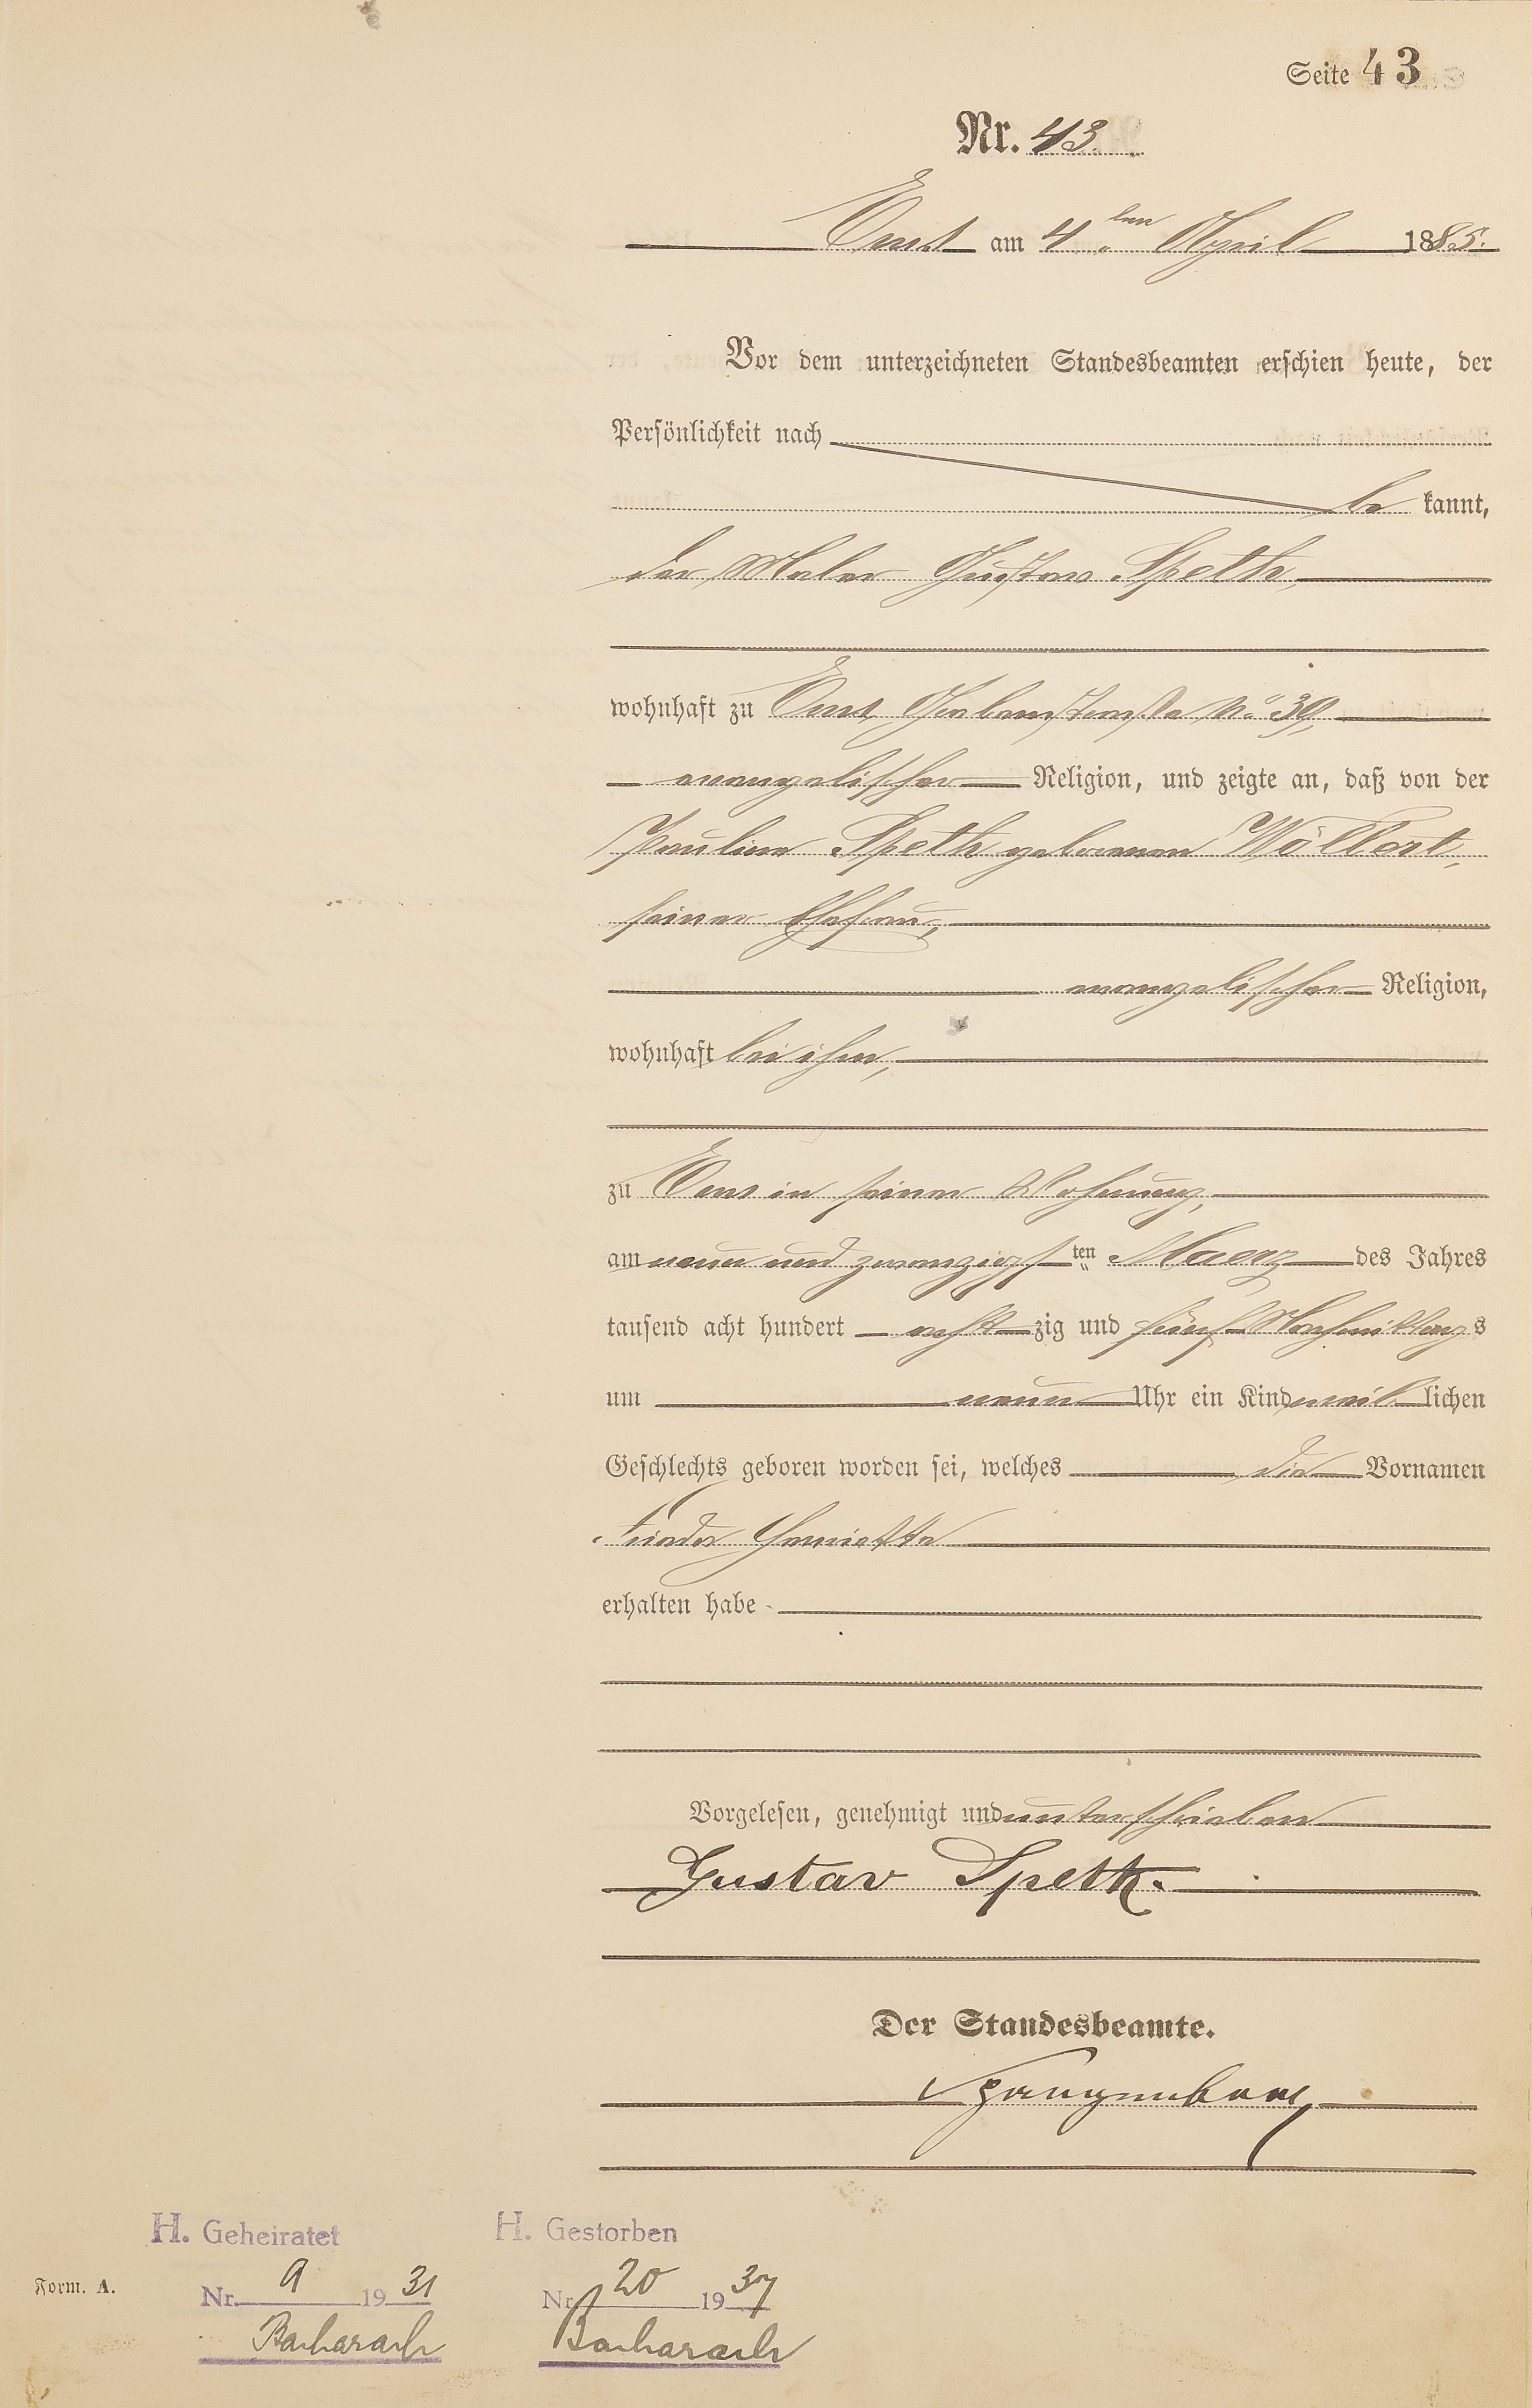 Seite 43
Nr. 43.
Ems am 4ten April 1885.
Vor dem unterzeichneten Standesbeamten erschien heute, der
Persönlichkeit nach
be kannt,
der Maler Gustav Speth,
wohnhaft zu Ems, No 39,
evangelischer Religion, und zeigte an, daß von der
Pauline Speth geborenen Wölbert,
seiner Ehefrau,
evangelischer Religion,
wohnhaft bei ihm,
zu Ems in seiner Wohnung,
am neun und zwanzigsten Maerz des Jahres
tausend acht hundert acht zig und fünf Nachmittags
um neun Uhr ein Kind weib lichen
Geschlechts geboren worden sei, welches die Vornamen
Henriette
erhalten habe
Vorgelesen, genehmigt und unterschrieben
Gustav Speth.
Der Standesbeamte.
Spangenberg
H. Geheiratet
Nr. 9 1931
Bacharach
H. Gestorben
Nr. 20 1937
Bacharach
Form. A.